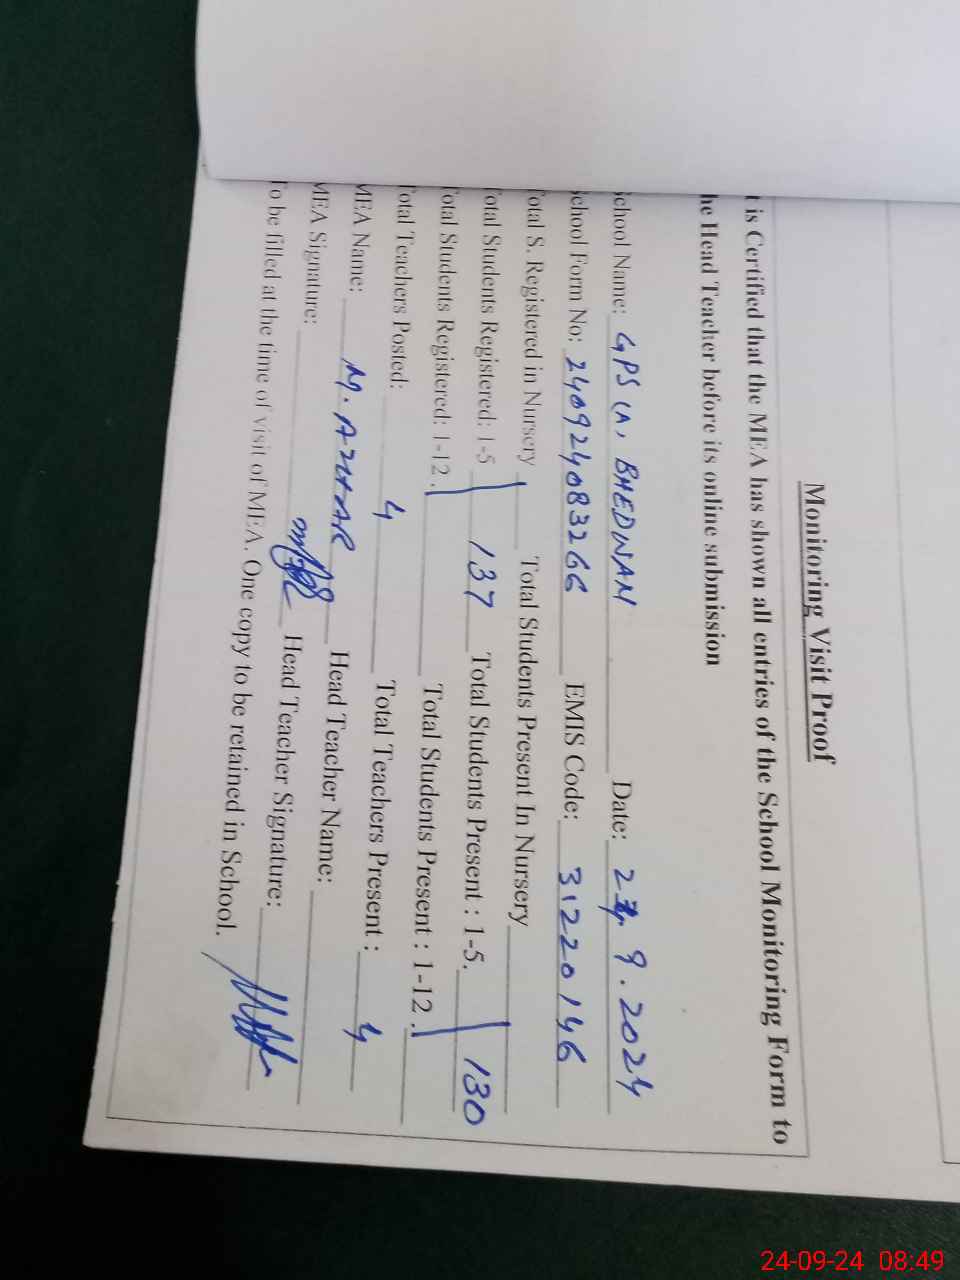 Monitoring Visit Proof
t is Certified that the MEA has shown all entries of the School Monitoring Form to
he Head Teacher before its online submission
School Name: GPS (A, BHEDWAM Date: 24. 9. 2024
School Form No: 240924083266 EMIS Code: 31220146
Total S. Registered in Nursery Total Students Present In Nursery
Total Students Registered: 1-5 137 Total Students Present : 1-5. 130
Total Students Registered: 1-12. Total Students Present : 1-12.
Total Teachers Posted: 4 Total Teachers Present : 4
MEA Name: M. AZHAR Head Teacher Name:
MEA Signature: Head Teacher Signature:
To be filled at the time of visit of MEA. One copy to be retained in School.
24-09-24 08:49